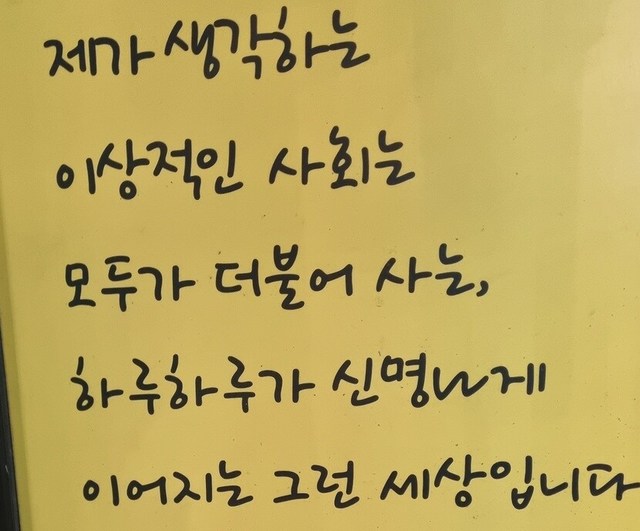 제가 생각하는
이상적인 사회는
모두가 더불어 사는,
하루하루가 신명나게
이어지는 그런 세상입니다